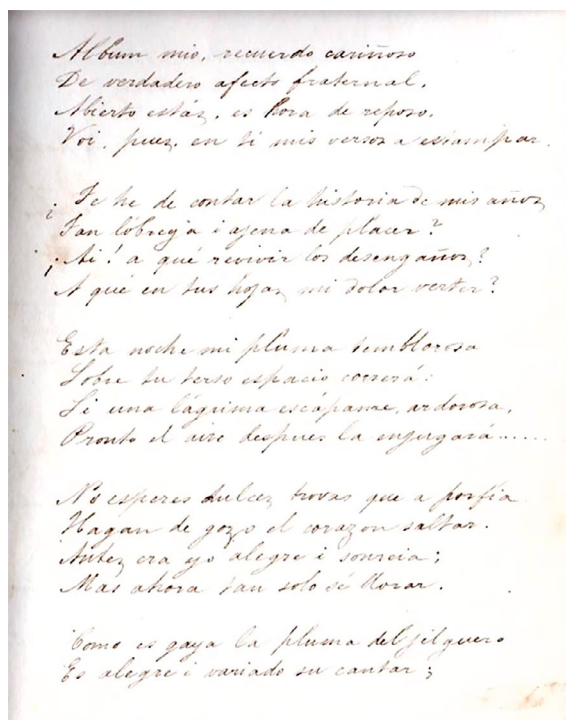 Album mio, recuerdo cariñoso
De verdadero afecto fraternal,
Abierto estáz, es hora de reposo,
Voi, puez, en tí mis versos a estampar.
¿Te he de contar la historia de mis añoz
Tan lóbrega i ajena de placer?
¡Ai! a qué revivir los desengañoz?
A qué en tus hojaz mi dolor verter?
Esta noche mi pluma temblorosa
Sobre tu terso espacio correrá:
Si una lágrima escápame, ardorosa,
Pronto el aire despues la enjugará......
No esperes dulcez trovas que a porfia
Hagan de gozo el corazon saltar.
Antez era yo alegre i sonreia;
Mas ahora tan solo sé llorar.
Como es gaya la pluma del jilguero
Es alegre i variado su cantar;